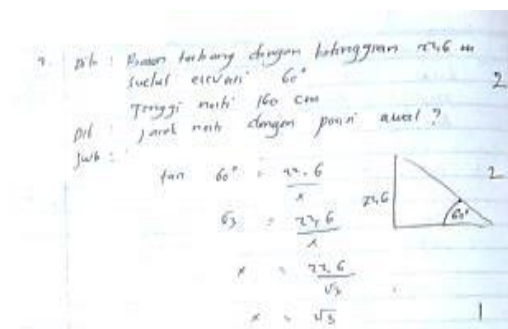 Dik : Balon terbang dengan ketinggian 22,6 m
sudut elevasi 60°
Tinggi nathi 160 cm
2
Dit : jarak nath dengan posisi awal ?
Jwb :
tan 60° = 22,6 / x
2
22,6
60°
√3 = 22,6 / x
x = 22,6 / √3
x = √3
1